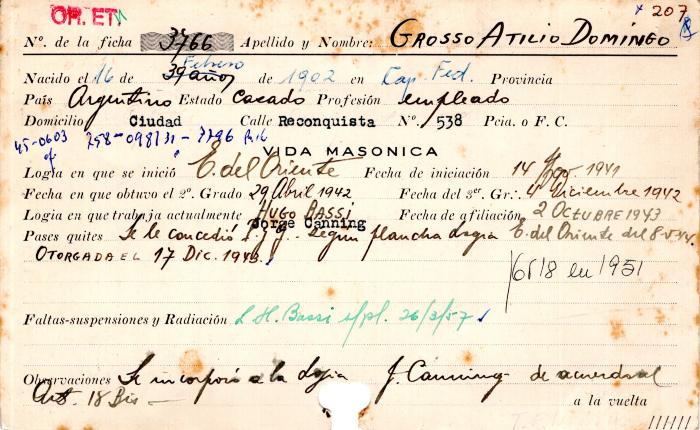 OR. ET. 207
Nº. de la ficha 3766 Apellido y Nombre: GROSSO ATILIO DOMINGO
Febrero
Nacido el 16 de 39 años de 1902 en Cap. Fed. Provincia
País Argentino Estado casado Profesión empleado
Domicilio Ciudad Calle Reconquista Nº. 538 Pcia. o F. C.
45-0603 758-098731 - 7796
VIDA MASONICA
Logia en que se inició E. del Oriente Fecha de iniciación 14 Ago. 1941
Fecha en que obtuvo el 2º. Grado 29 Abril 1942 Fecha del 3er. Gr.: 4 Diciembre 1942
Logia en que trabaja actualmente HUGO BASSI Fecha de afiliación 2 OCTUBRE 1943
Jorge Canning
Pases quites Se le concedió según plancha logia E. del Oriente del
OTORGADA EL 17 DIC. 194
6518 en 1951
Faltas-suspensiones y Radiación L. H. Bassi s/pl. 26/3/57
Observaciones Se incorporó a la Logia J. Canning de acuerdo al
Art. 18 Bis — a la vuelta